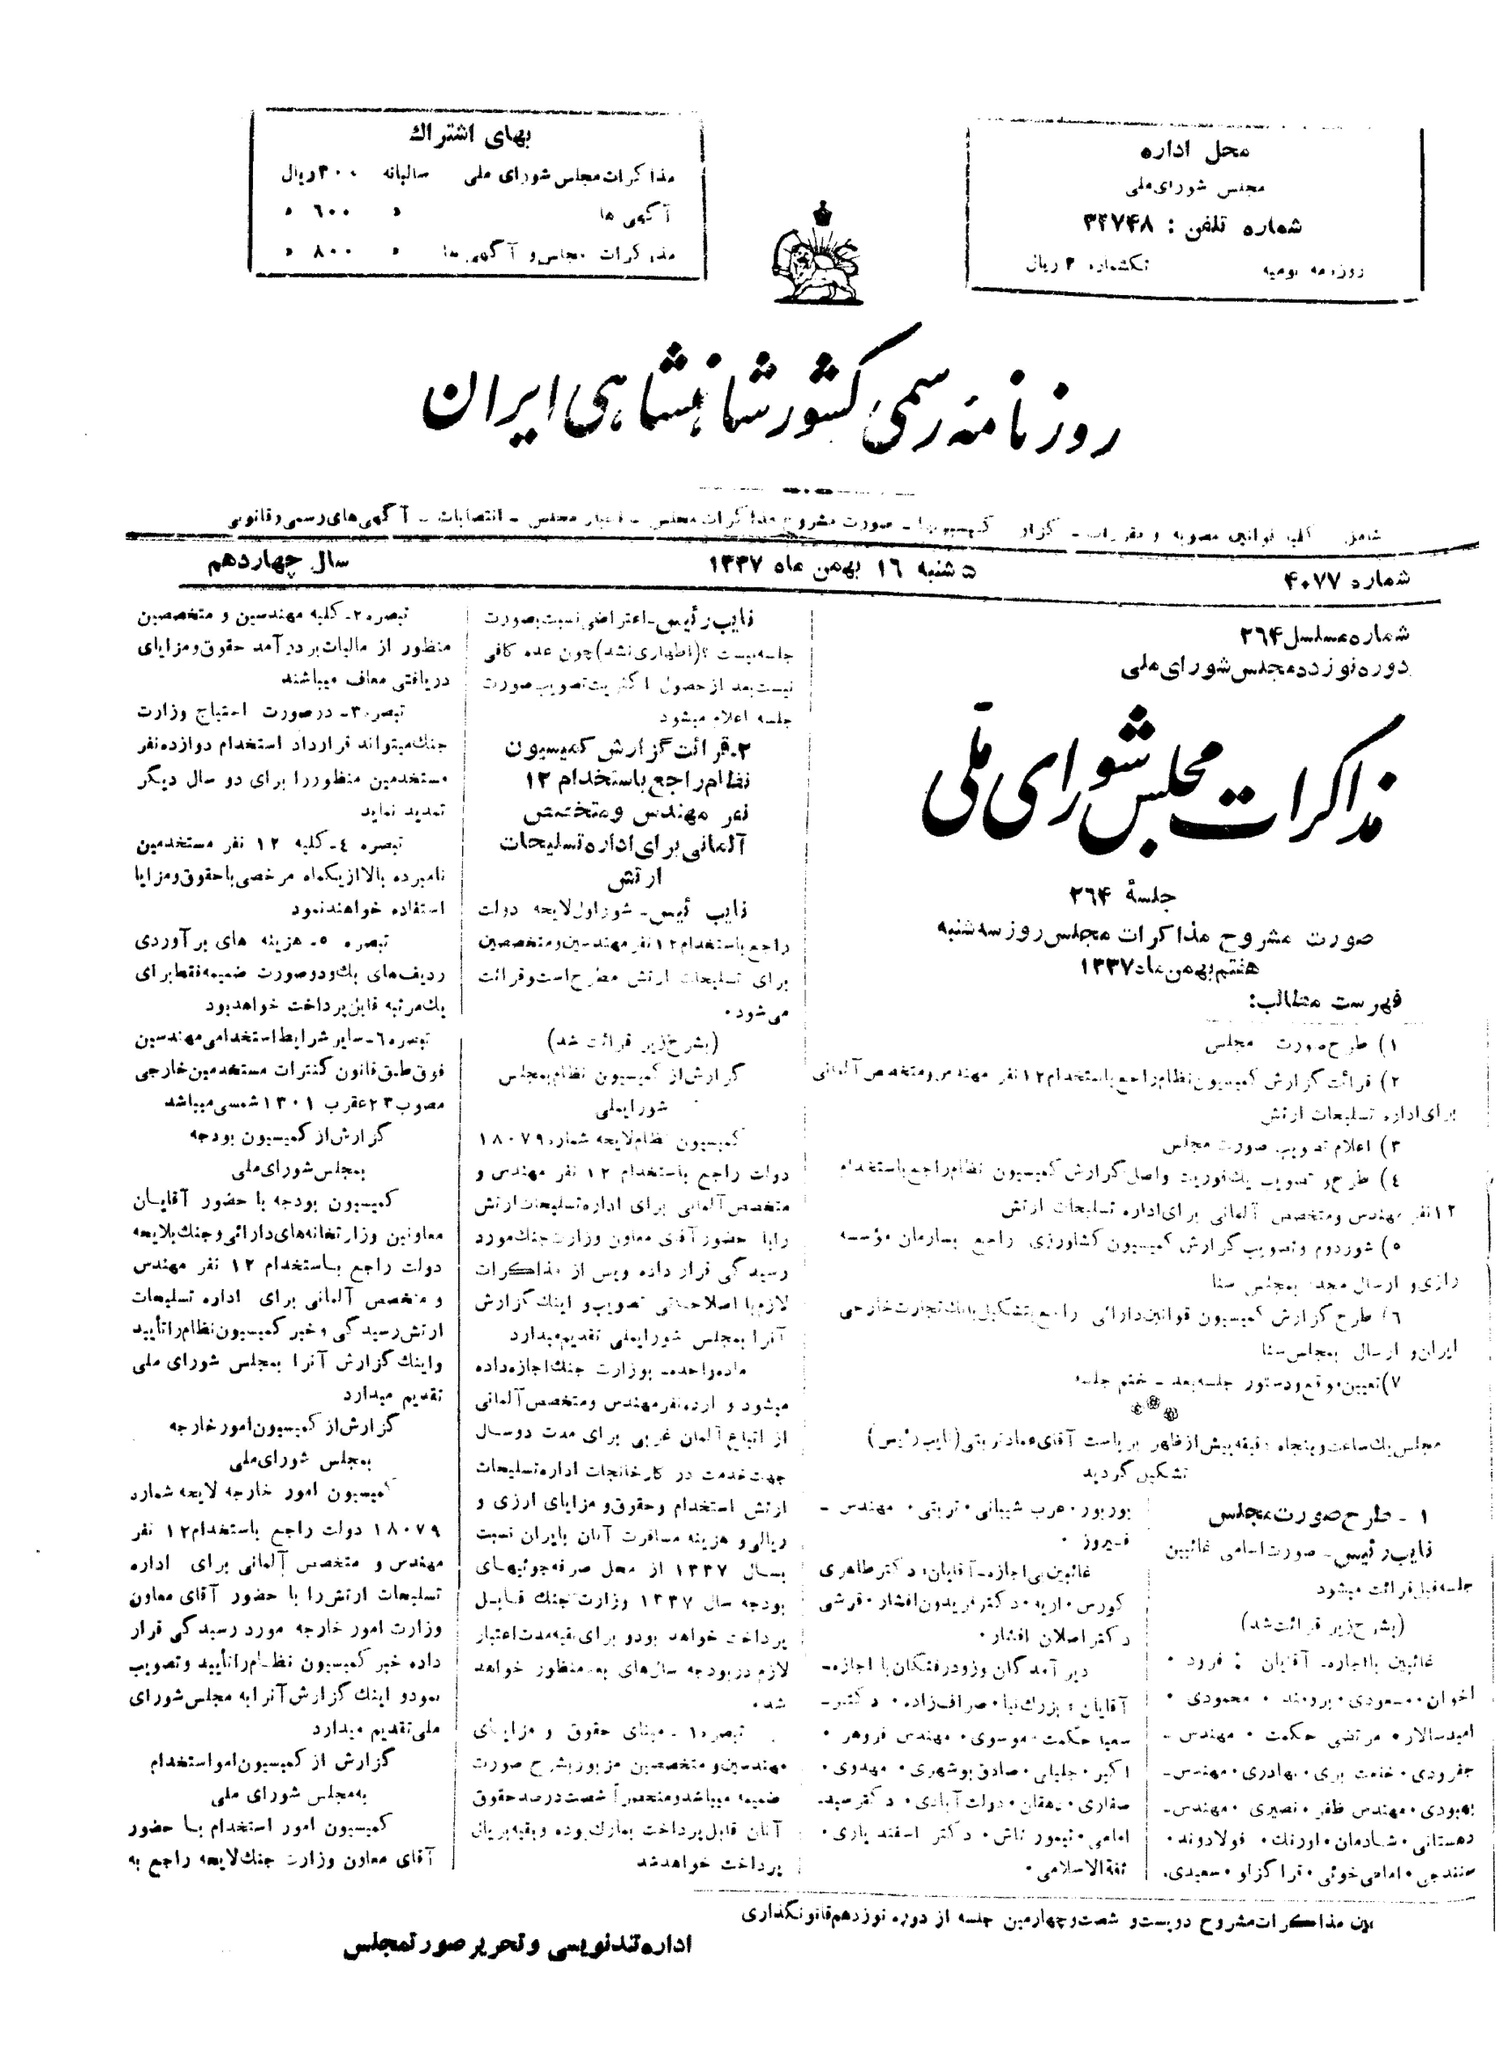 محل اداره
مجلس شورای ملی
شماره تلفن : ۳۲۷۴۸
روزنامه یومیه تکشماره ۲ ریال
بهای اشتراك
مذاکرات مجلس شورای ملی سالیانه ۳۰۰ ریال
آگهی ها » ۶۰۰ »
مذاکرات مجلس و آگهی ها » ۸۰۰ »
روزنامه رسمی کشور شاهنشاهی ایران
شامل کلیه قوانین مصوبه و مقررات - گزارش کمیسیونها - صورت مشروح مذاکرات مجلس - اخبار مجلس - انتصابات - آگهی های رسمی و قانونی
شماره ۴۰۷۷
۵ شنبه ۱۶ بهمن ماه ۱۳۳۷
سال چهاردهم
شماره مسلسل ۲۶۴
دوره نوزده مجلس شورای ملی
مذاکرات مجلس شورای ملی
جلسهٔ ۲۶۴
صورت مشروح مذاکرات مجلس روز سه شنبه
هفتم بهمن ماه ۱۳۳۷
فهرست مطالب:
۱) طرح صورت مجلس
۲) قرائت گزارش کمیسیون نظام راجع باستخدام ۱۲ نفر مهندس و متخصص آلمانی
برای اداره تسلیحات ارتش
۳) اعلام تصویب صورت مجلس
۴) طرح و تصویب یك فوریت و اصل گزارش کمیسیون نظام راجع باستخدام
۱۲ نفر مهندس و متخصص آلمانی برای اداره تسلیحات ارتش
۵) شور دوم و تصویب گزارش کمیسیون کشاورزی راجع بسازمان مؤسسه
رازی و ارسال مجدد بمجلس سنا
۶) طرح گزارش کمیسیون قوانین دارائی راجع بتشکیل بانك تجارت خارجی
ایران و ارسال بمجلس سنا
۷) تعیین موقع و دستور جلسه بعد - ختم جلسه
مجلس یك ساعت و پنجاه دقیقه پیش از ظهر بریاست آقای عماد تربتی (نایب رئیس)
تشکیل گردید
۱ - طرح صورت مجلس
نایب رئیس - صورت اسامی غائبین
جلسه قبل قرائت میشود
(بشرح زیر قرائت شد)
غائبین با اجازه - آقایان : فرود •
اخوان • مسعودی • برومند • محمودی •
امیدسالار • مرتضی حکمت • مهندس -
جفرودی • خلعت بری • بهادری • مهندس -
بهبودی • مهندس ظفر • نصیری • مهندس -
دهستانی • شادمان • اورنك • فولادوند •
سنندجی • امامی خوئی • قراگزلو • سعیدی.
بوربور • عرب شیبانی • تربتی • مهندس -
فیروز •
غائبین بی اجازه - آقایان: دکتر طاهری
کورس • اریه • دکتر فریدون افشار • قرشی
دکتر اصلان افشار •
دیر آمدگان و زود رفتگان با اجازه -
آقایان: بزرك نیا • صراف زاده • دکتر -
سعید حکمت • موسوی • مهندس فروهر •
اکبر • جلیلی • صادق بوشهری • مهدوی •
صفاری • دهقان • دولت آبادی • دکتر سید -
امامی • تیمور تاش • دکتر اسفندیاری •
ثقة الاسلامی •
نایب رئیس - اعتراضی نسبت بصورت
جلسه نیست ؟ (اظهاری نشد) چون عده کافی
نیست بعد از حصول اکثریت تصویب صورت
جلسه اعلام میشود
۲ - قرائت گزارش کمیسیون
نظام راجع باستخدام ۱۲
نفر مهندس و متخصص
آلمانی برای اداره تسلیحات
ارتش
نایب رئیس - شور اول لایحه دولت
راجع باستخدام ۱۲ نفر مهندسین و متخصصین
برای تسلیحات ارتش مطرح است و قرائت
می شود •
(بشرح زیر قرائت شد)
گزارش از کمیسیون نظام بمجلس
شورایملی
کمیسیون نظام لایحه شماره ۱۸۰۷۹
دولت راجع باستخدام ۱۲ نفر مهندس و
متخصص آلمانی برای اداره تسلیحات ارتش
را با حضور آقای معاون وزارت جنك مورد
رسیدگی قرار داده و پس از مذاکرات
لازم با اصلاحاتی تصویب و اینك گزارش
آنرا بمجلس شورایملی تقدیم میدارد
ماده واحده - بوزارت جنك اجازه داده
میشود دوازده نفر مهندس و متخصص آلمانی
از اتباع آلمان غربی برای مدت دو سال
جهت خدمت در کارخانجات اداره تسلیحات
ارتش استخدام و حقوق و مزایای ارزی و
ریالی و هزینه مسافرت آنان بایران نسبت
بسال ۱۳۳۷ از محل صرفه جوئیهای
بودجه سال ۱۳۳۷ وزارت جنك قابل
پرداخت خواهد بود و برای بقیه مدت اعتبار
لازم در بودجه سال های بعد منظور خواهد
شد •
تبصره ۱ - مبنای حقوق و مزایای
مهندسین و متخصصین مزبور بشرح صورت
ضمیمه میباشد و منحصراً شصت درصد حقوق
آنان قابل پرداخت بمارك بوده و بقیه بریال
پرداخت خواهد شد
تبصره ۲ - کلیه مهندسین و متخصصین
منظور از مالیات بر درآمد حقوق و مزایای
دریافتی معاف میباشند
تبصره ۳ - در صورت احتیاج وزارت
جنك میتواند قرارداد استخدام دوازده نفر
مستخدمین منظور را برای دو سال دیگر
تمدید نماید
تبصره ۴ - کلیه ۱۲ نفر مستخدمین
نامبرده بالا از یکماه مرخصی با حقوق و مزایا
استفاده خواهند نمود
تبصره ۵ - هزینه های برآوردی
ردیف های یك و دو صورت ضمیمه فقط برای
یك مرتبه قابل پرداخت خواهد بود
تبصره ۶ - سایر شرایط استخدامی مهندسین
فوق طبق قانون کنترات مستخدمین خارجی
مصوب ۲۳ عقرب ۱۳۰۱ شمسی میباشد
گزارش از کمیسیون بودجه
بمجلس شورای ملی
کمیسیون بودجه با حضور آقایان
معاونین وزارتخانه های دارائی و جنك بلایحه
دولت راجع باستخدام ۱۲ نفر مهندس
و متخصص آلمانی برای اداره تسلیحات
ارتش رسیدگی و خبر کمیسیون نظام را تأیید
و اینك گزارش آنرا بمجلس شورای ملی
تقدیم میدارد
گزارش از کمیسیون امور خارجه
بمجلس شورای ملی
کمیسیون امور خارجه لایحه شماره
۱۸۰۷۹ دولت راجع باستخدام ۱۲ نفر
مهندس و متخصص آلمانی برای اداره
تسلیحات ارتش را با حضور آقای معاون
وزارت امور خارجه مورد رسیدگی قرار
داده خبر کمیسیون نظام را تأیید و تصویب
نمود و اینك گزارش آنرا به مجلس شورای
ملی تقدیم میدارد
گزارش از کمیسیون امور استخدام
به مجلس شورای ملی
کمیسیون امور استخدام با حضور
آقای معاون وزارت جنك لایحه راجع به
متن مذاکرات مشروح دویست و شصت و چهارمین جلسه از دوره نوزدهم قانونگذاری
اداره تندنویسی و تحریر صورتمجلس